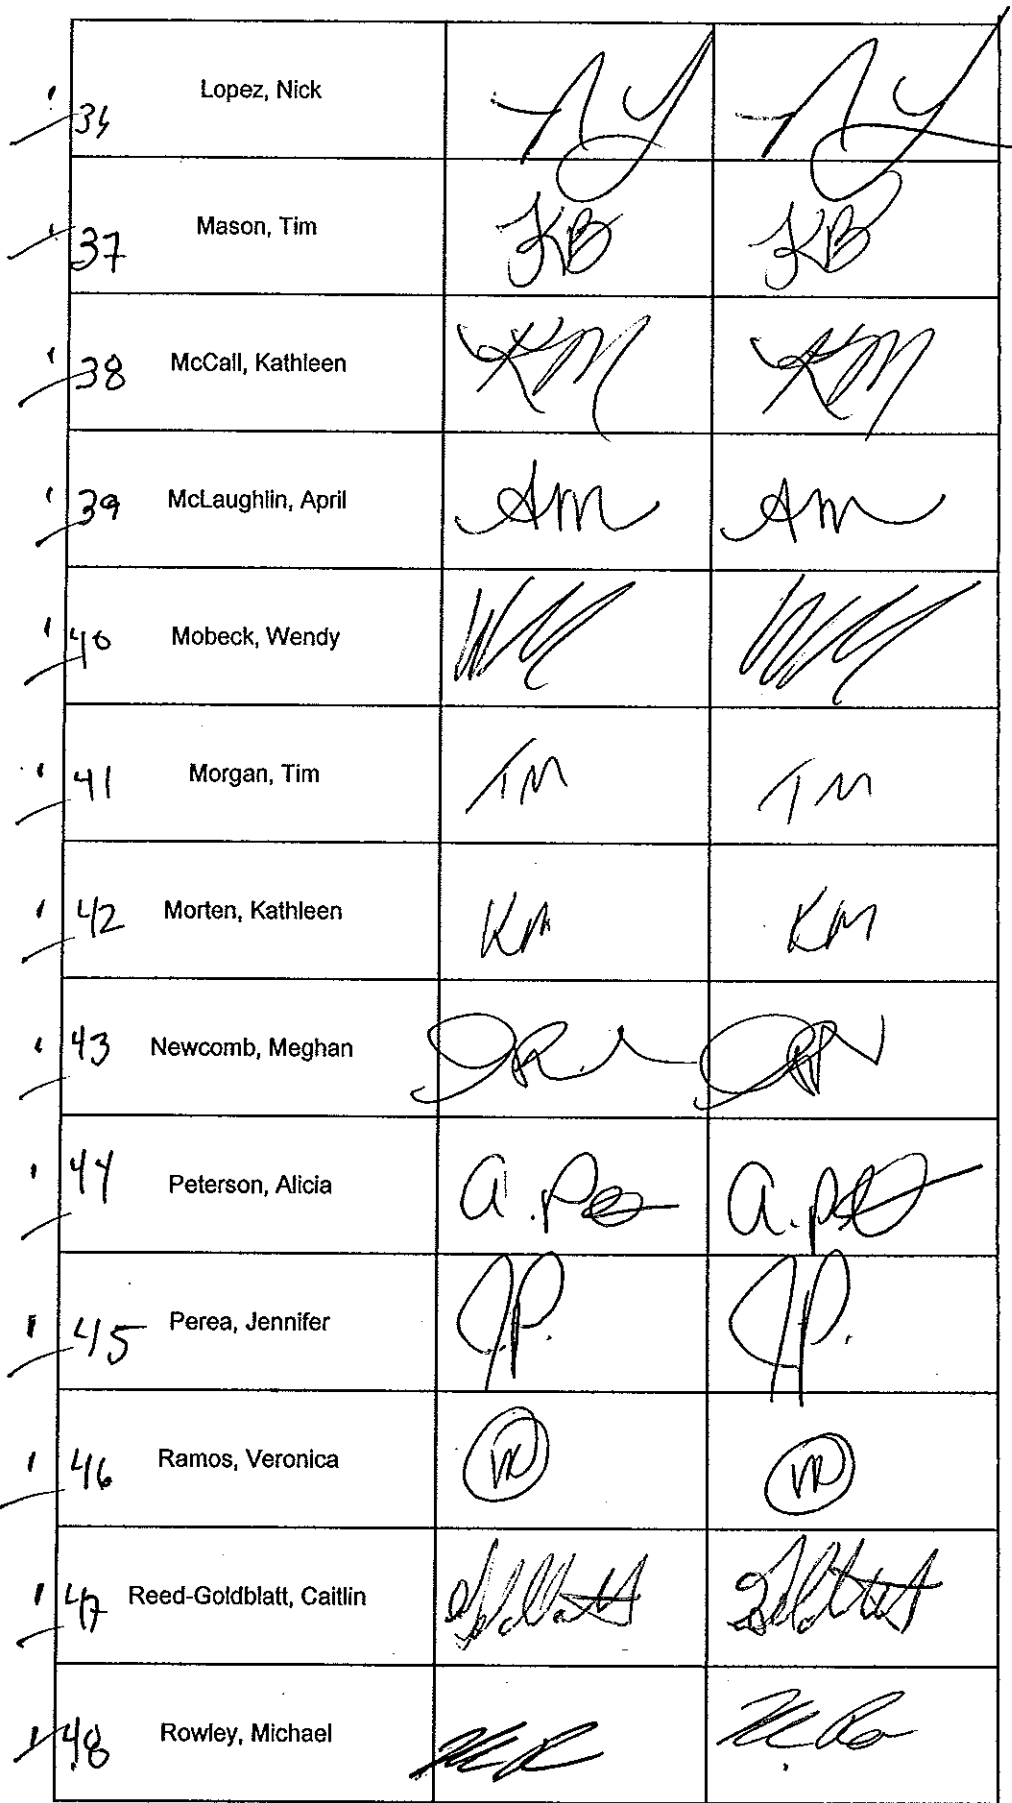 Lopez, Nick
37 Mason, Tim KB KB
38 McCall, Kathleen KM KM
39 McLaughlin, April AM AM
40 Mobeck, Wendy
41 Morgan, Tim TM TM
42 Morten, Kathleen KM KM
43 Newcomb, Meghan
44 Peterson, Alicia
45 Perea, Jennifer J.P. J.P.
46 Ramos, Veronica VR VR
47 Reed-Goldblatt, Caitlin
48 Rowley, Michael